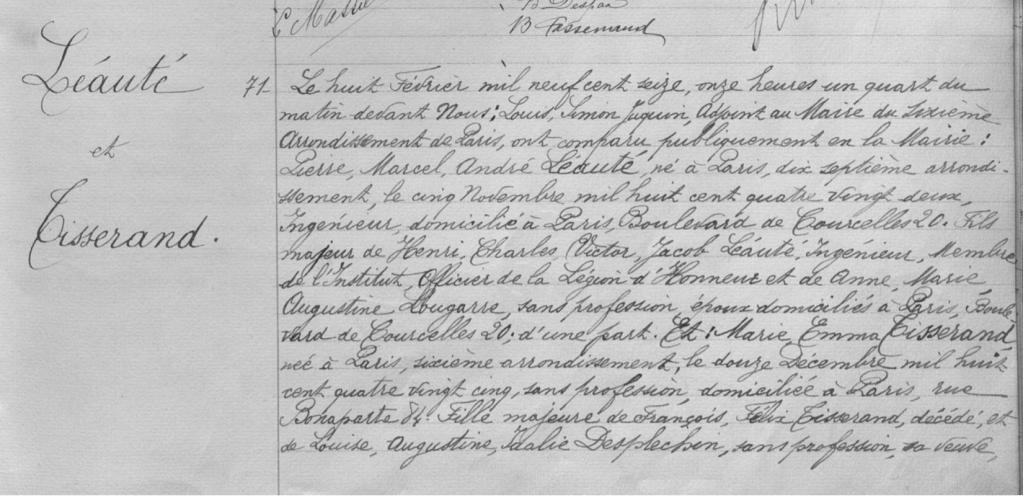 B Fassenaud
Léauté
et
Tisserand.
71 Le huit Février mil neuf cent seize, onze heures un quart du
matin devant Nous: Louis, Simon Juquin, Adjoint au Maire du Sixième
Arrondissement de Paris, ont comparu publiquement en la Mairie:
Pierre, Marcel, André Léauté, né à Paris, dix septième arrondi-
ssement, le cinq Novembre mil huit cent quatre vingt deux,
Ingénieur, domicilié à Paris, Boulevard de Courcelles 20. Fils
majeur de Henri, Charles, Victor, Jacob Léauté, Ingénieur, Membre
de l'Institut, Officier de la Légion d'Honneur et de Anne, Marie
Augustine Lougarre, sans profession, époux domiciliés à Paris, Boule-
vard de Courcelles 20; d'une part. Et: Marie, Emma Tisserand
née à Paris, sixième arrondissement, le douze Décembre mil huit
cent quatre vingt cinq, sans profession, domiciliée à Paris, rue
Bonaparte 84. Fille majeure de François, Félix Tisserand, décédé, et
de Louise, Augustine, Idalie Desplechen, sans profession, sa veuve,